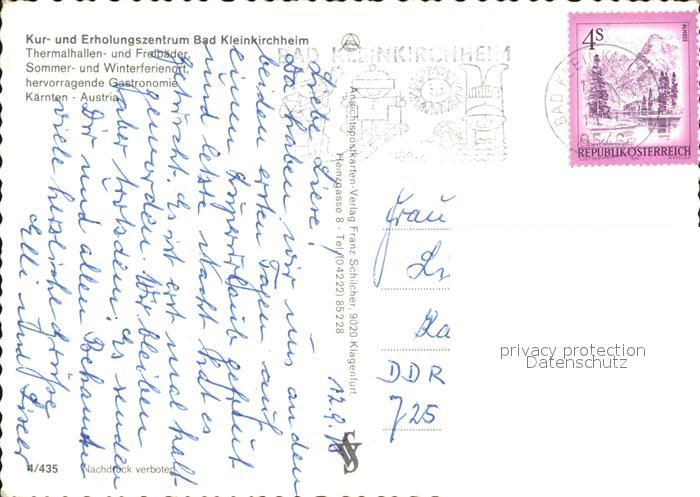 Kur- und Erholungszentrum Bad Kleinkirchheim
Thermalhallen- und Freibäder,
Sommer- und Winterferienort,
hervorragende Gastronomie
Kärnten - Austria
BAD KLEINKIRCHHEIM
4S
ALMSEE
REPUBLIK ÖSTERREICH
BAD KLEIN
9546
12.9.78
Liebe Liesel!
Da haben wir uns an den
beiden ersten Tagen auf
einen Superurlaub gefreut
und letzte Nacht hat es
geschneit. Es ist erst mal kalt
geworden. Wir bleiben
aber trotzdem! Es senden
Dir und allen Bekannten
viele herzliche Grüße
Elli und
Ansichtspostkarten-Verlag Franz Schilcher, 9020 Klagenfurt
Heinzgasse 8 - Tel. (04222) 85228
Frau
Li
Ka
DDR
725
privacy protection
Datenschutz
4/435
Nachdruck verboten